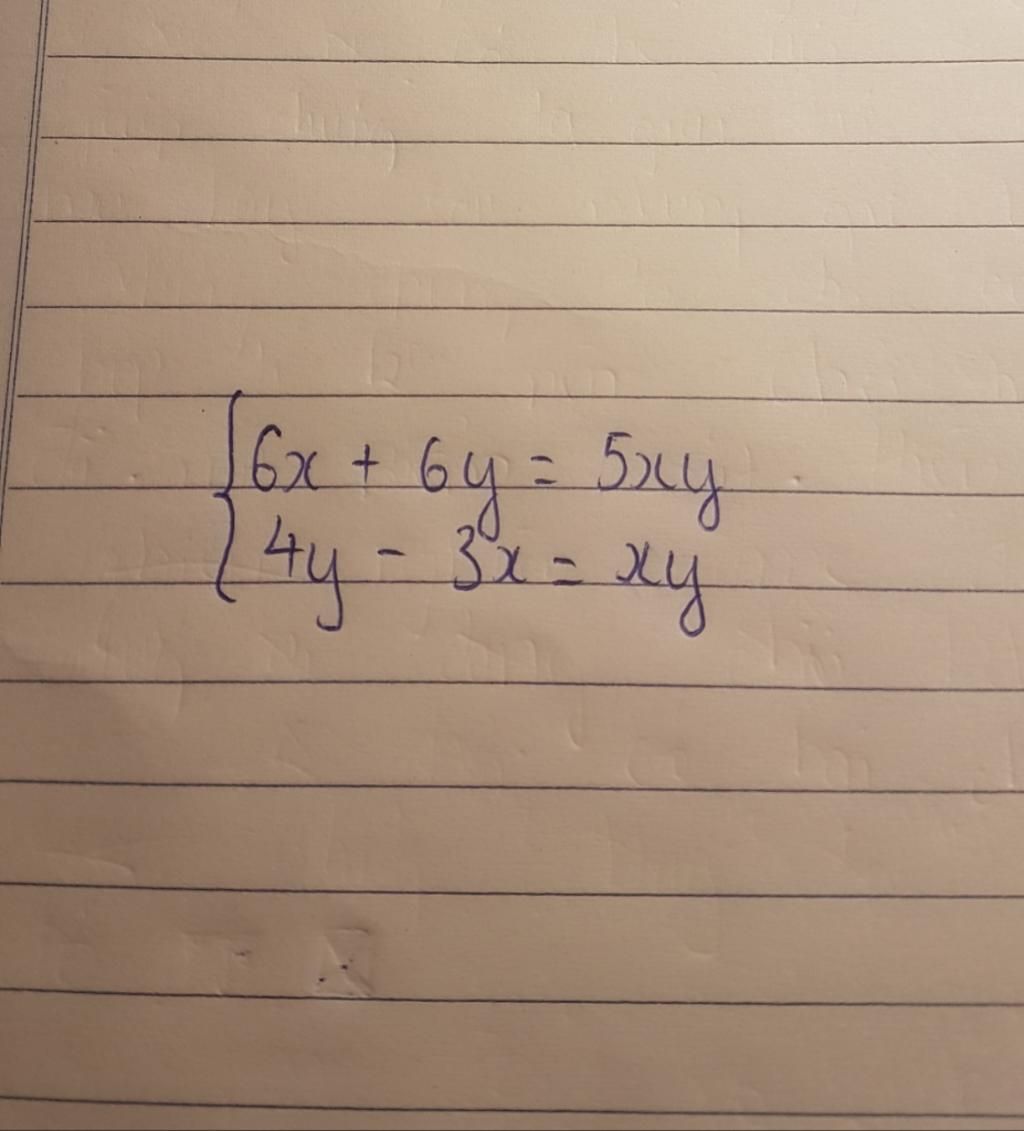 6x + 6y = 5xy
4y - 3x = xy